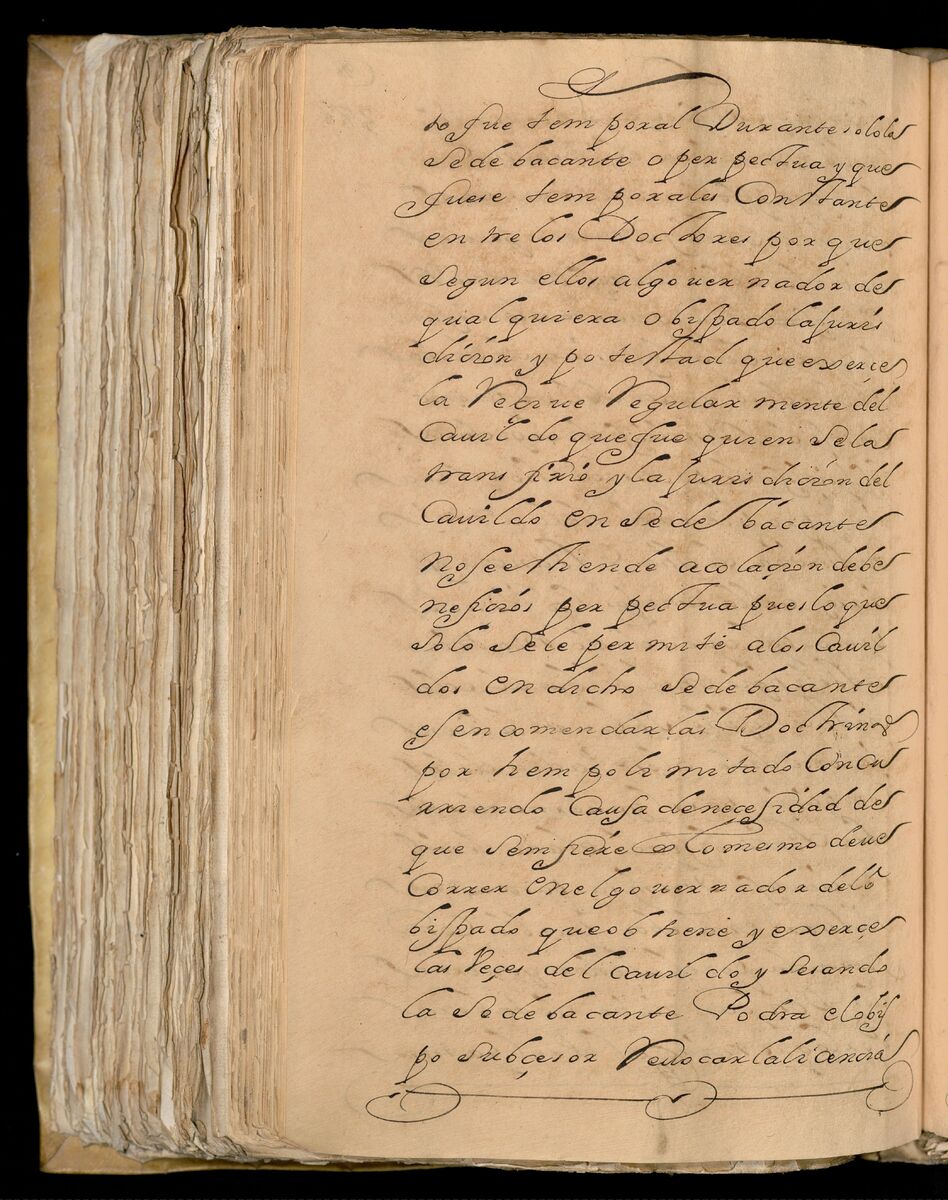 to fue temporal Durante solola
Sede bacante o perpectua y que
fuese temporales Constante
entre los Doctores por que
Segun ellos al governador de
qual quiera obispado la juris
dición y potestad que exerçe
la Reçive Regularmente del
Cauildo que fue quien se la
transfirió y la jurisdición del
Cauildo en Sede bacante
no se estiende a colaçión de be
nefiçios perpectua pues lo que
solo se le permite a los Cauil
dos en dicho Sede bacante
es encomendar las Doctrinas
por tiempo limitado Concu
rriendo Causa de necesidad de
que se infiere Lo mesmo deue
Correr en el governador del o
bispado que obtiene y exerçe
las Veçes del cauildo y sesando
la Sede bacante Podra el obis
po subçesor Reuocar la licencia